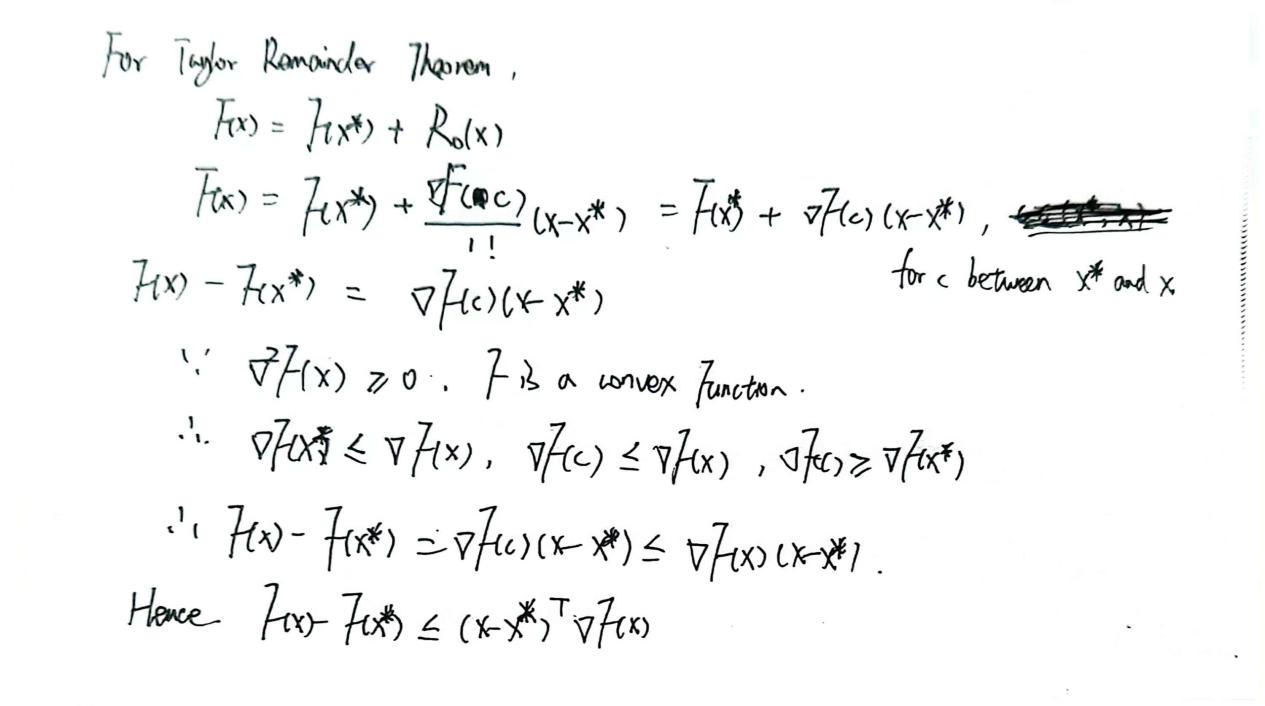 For Taylor Remainder Theorem,
F(x) = F(x*) + R₀(x)
F(x) = F(x*) + ∇F(c)/1! (x-x*) = F(x*) + ∇F(c)(x-x*),
for c between x* and x
F(x) - F(x*) = ∇F(c)(x-x*)
∵ ∇²F(x) ≥ 0. F is a convex function.
∴ ∇F(x*) ≤ ∇F(x), ∇F(c) ≤ ∇F(x), ∇F(c) ≥ ∇F(x*)
∴ F(x) - F(x*) = ∇F(c)(x-x*) ≤ ∇F(x)(x-x*).
Hence F(x) - F(x*) ≤ (x-x*)ᵀ∇F(x)